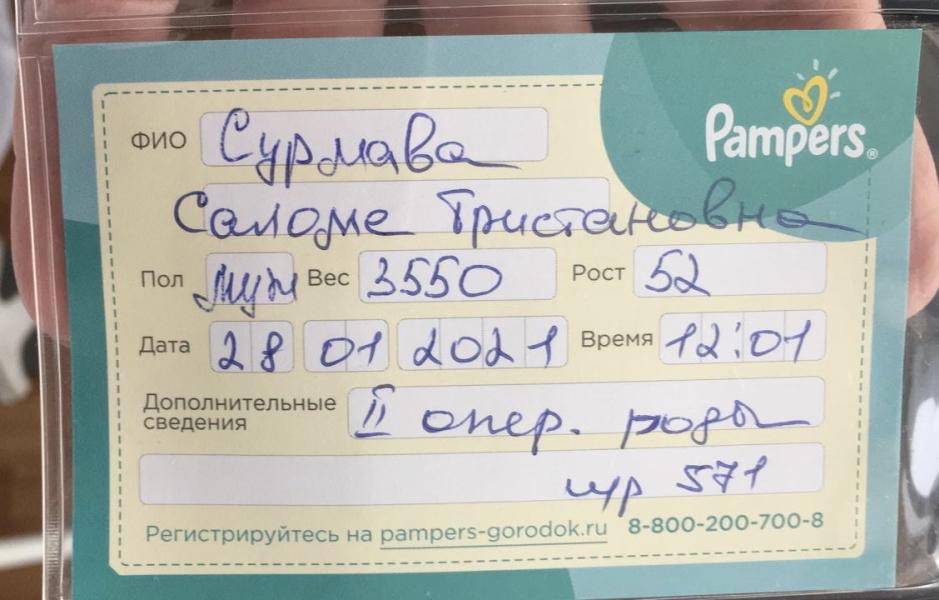 Pampers®
ФИО Сурмава
Саломе Тристановна
Пол муж Вес 3550 Рост 52
Дата 28 01 2021 Время 12:01
Дополнительные сведения II опер. роды
571
Регистрируйтесь на pampers-gorodok.ru 8-800-200-700-8